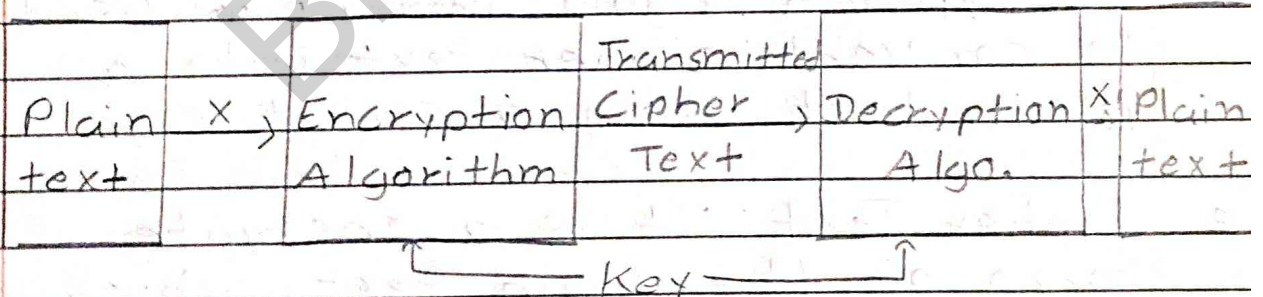 Plain text
X
Encryption Algorithm
Transmitted Cipher Text
Decryption Algo.
X
Plain text
Key